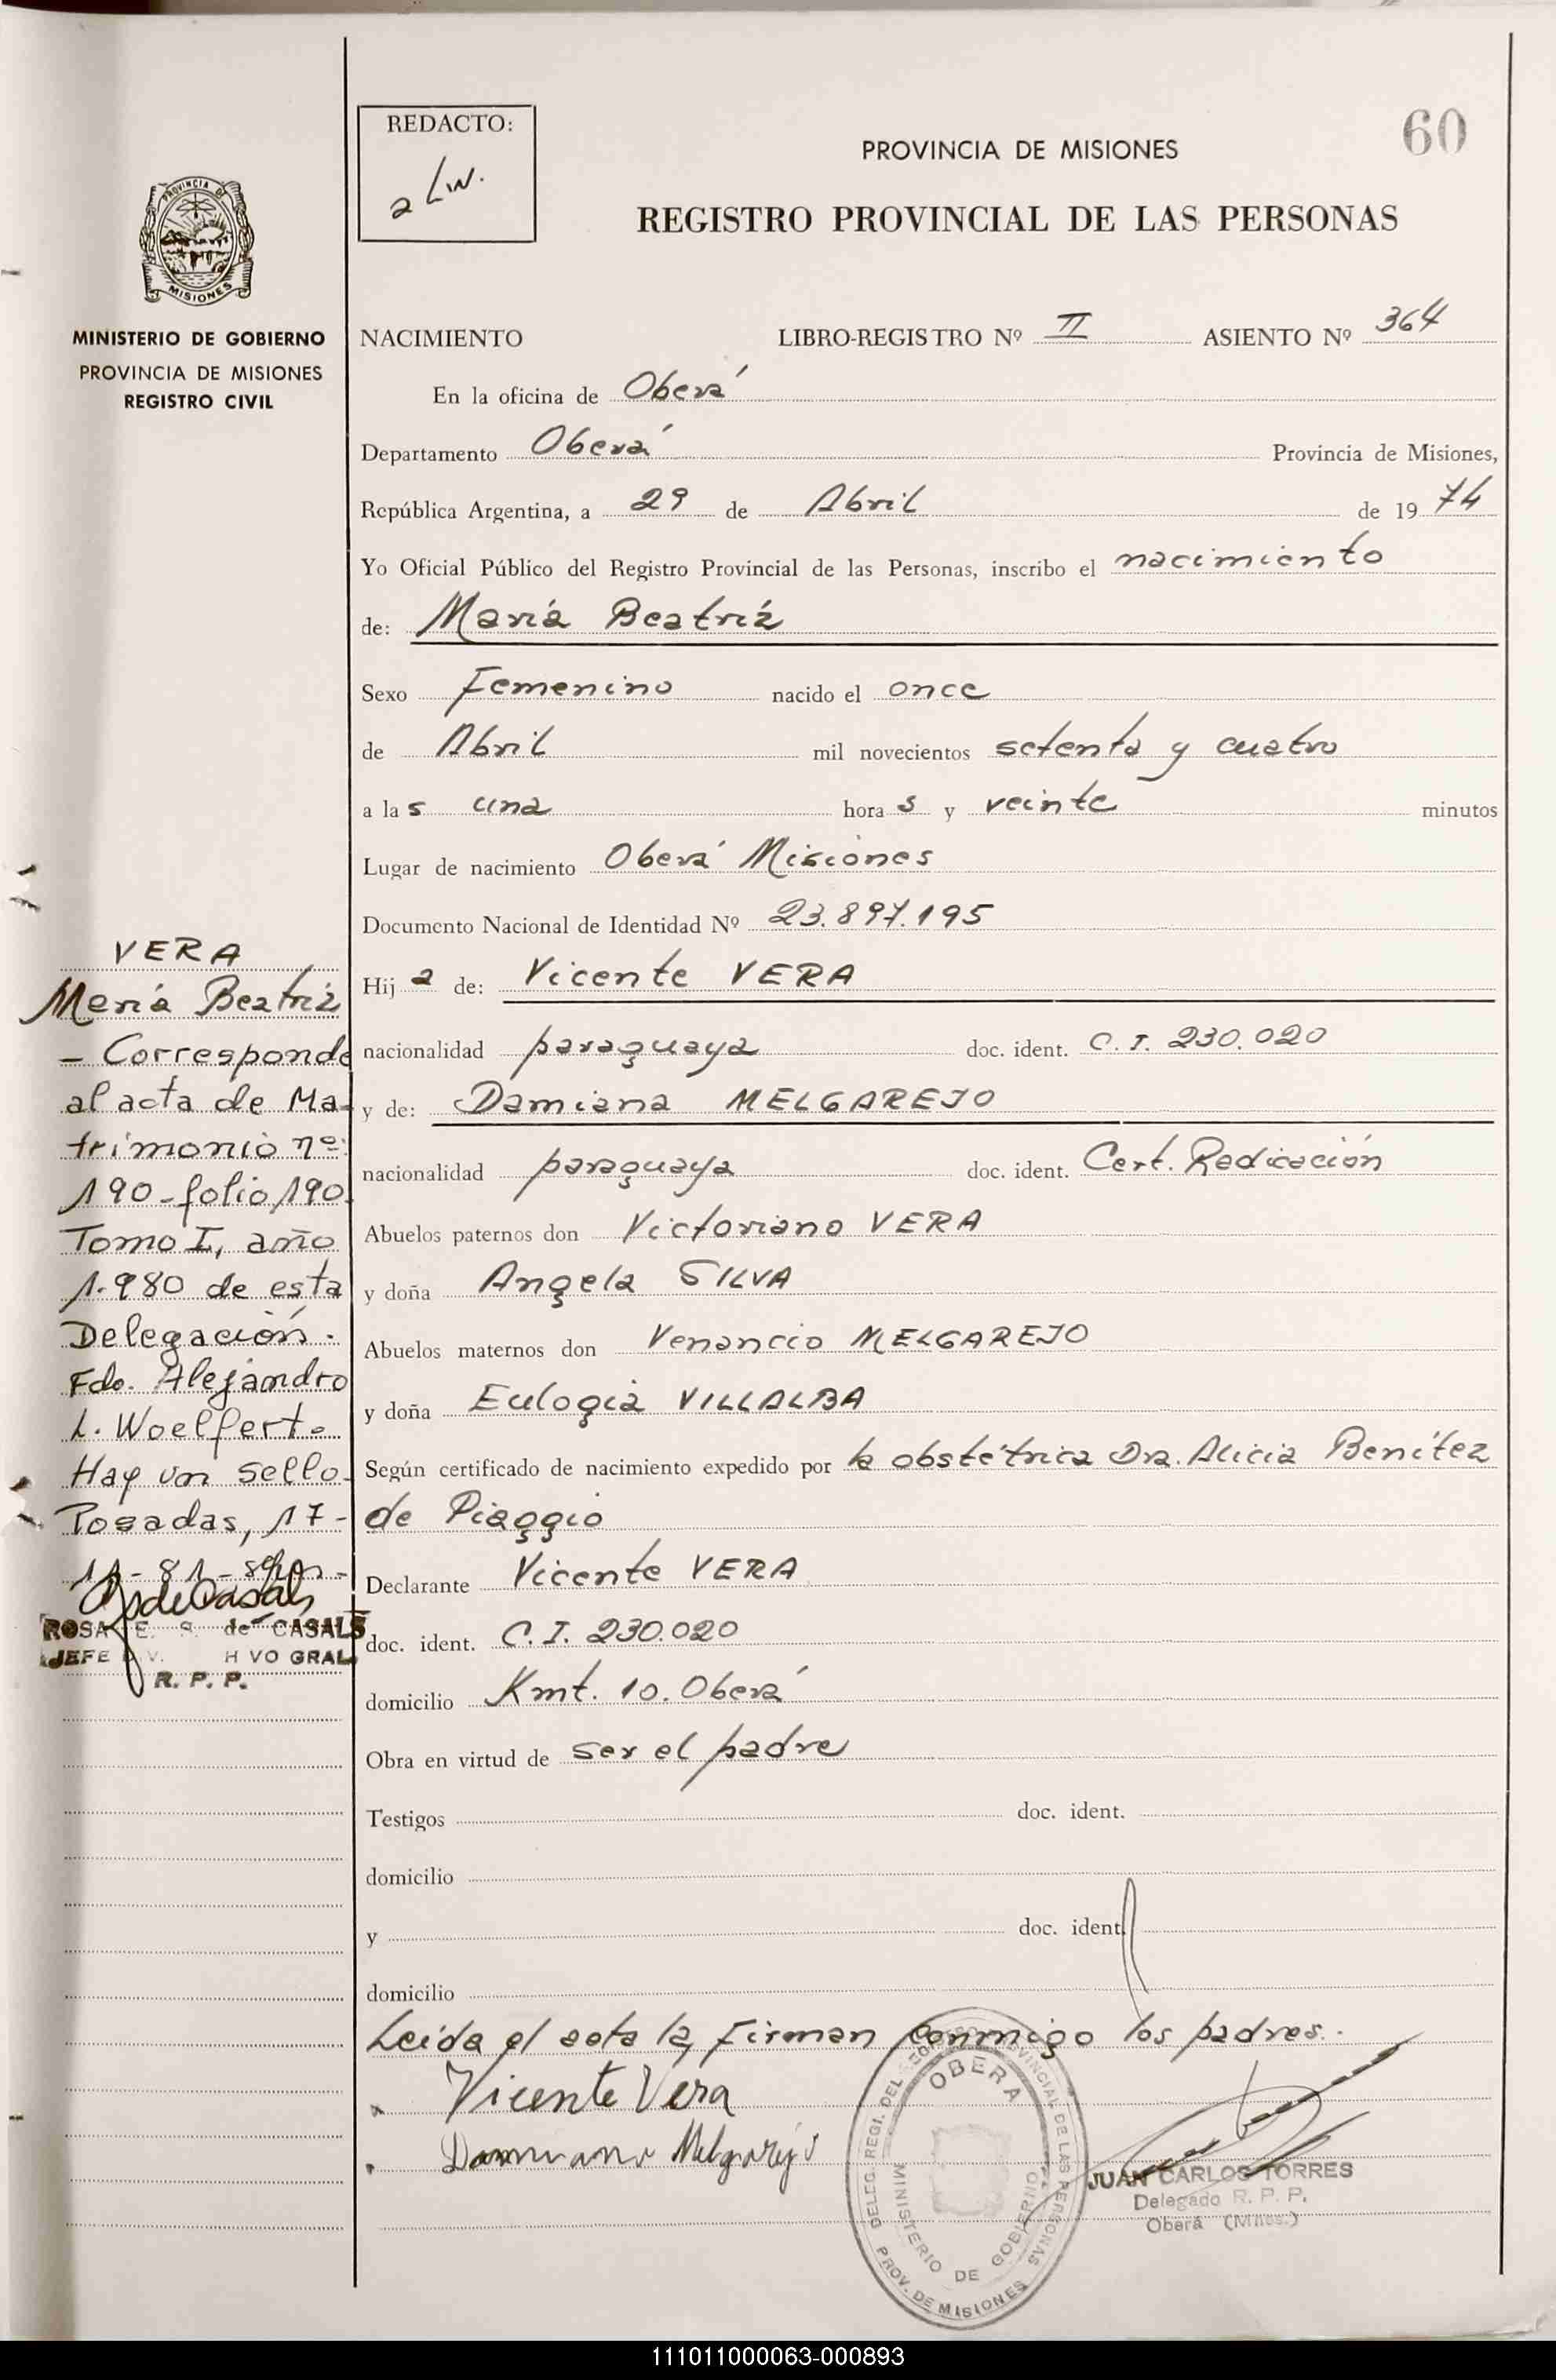 60
REDACTO:
a Lin.
PROVINCIA DE MISIONES
REGISTRO PROVINCIAL DE LAS PERSONAS
PROVINCIA DE
MISIONES
MINISTERIO DE GOBIERNO
PROVINCIA DE MISIONES
REGISTRO CIVIL
NACIMIENTO LIBRO-REGISTRO Nº II ASIENTO Nº 364
En la oficina de Oberá
Departamento Oberá Provincia de Misiones,
República Argentina, a 29 de Abril de 19 74
Yo Oficial Público del Registro Provincial de las Personas, inscribo el nacimiento
de: María Beatríz
Sexo Femenino nacido el once
de Abril mil novecientos setenta y cuatro
a las una horas y veinte minutos
Lugar de nacimiento Oberá Misiones
Documento Nacional de Identidad Nº 23.897.195
Hija de: Vicente VERA
nacionalidad paraguaya doc. ident. C.I. 230.020
y de: Damiana MELGAREJO
nacionalidad paraguaya doc. ident. Cert. Radicación
Abuelos paternos don Victoriano VERA
y doña Angela SILVA
Abuelos maternos don Venancio MELGAREJO
y doña Eulogia VILLALBA
Según certificado de nacimiento expedido por la obstétrica Dra. Alicia Benítez
de Piaggio
Declarante Vicente VERA
doc. ident. C.I. 230.020
domicilio Kmt. 10. Oberá
Obra en virtud de ser el padre
Testigos doc. ident.
domicilio
y doc. ident.
domicilio
Leída el acta la firman conmigo los padres.
Vicente Vera
Damiana Melgarejo
VERA
María Beatríz
- Corresponde
al acta de Ma-
trimonio nº:
190-folio 190.
Tomo I, año
1.980 de esta
Delegación.
Fdo. Alejandro
L. Woelfert.
Hay un sello.
Posadas, 17-
11-81-
ROSA E. S. de CASALS
JEFE
R. P. P.
DELEG. REGI. DEL REGISTRO PROVINCIAL DE LAS PERSONAS
OBERA
MINISTERIO DE GOBIERNO
PROV. DE MISIONES
JUAN CARLOS TORRES
Delegado R. P. P.
Oberá (Mnes.)
111011000063-000893